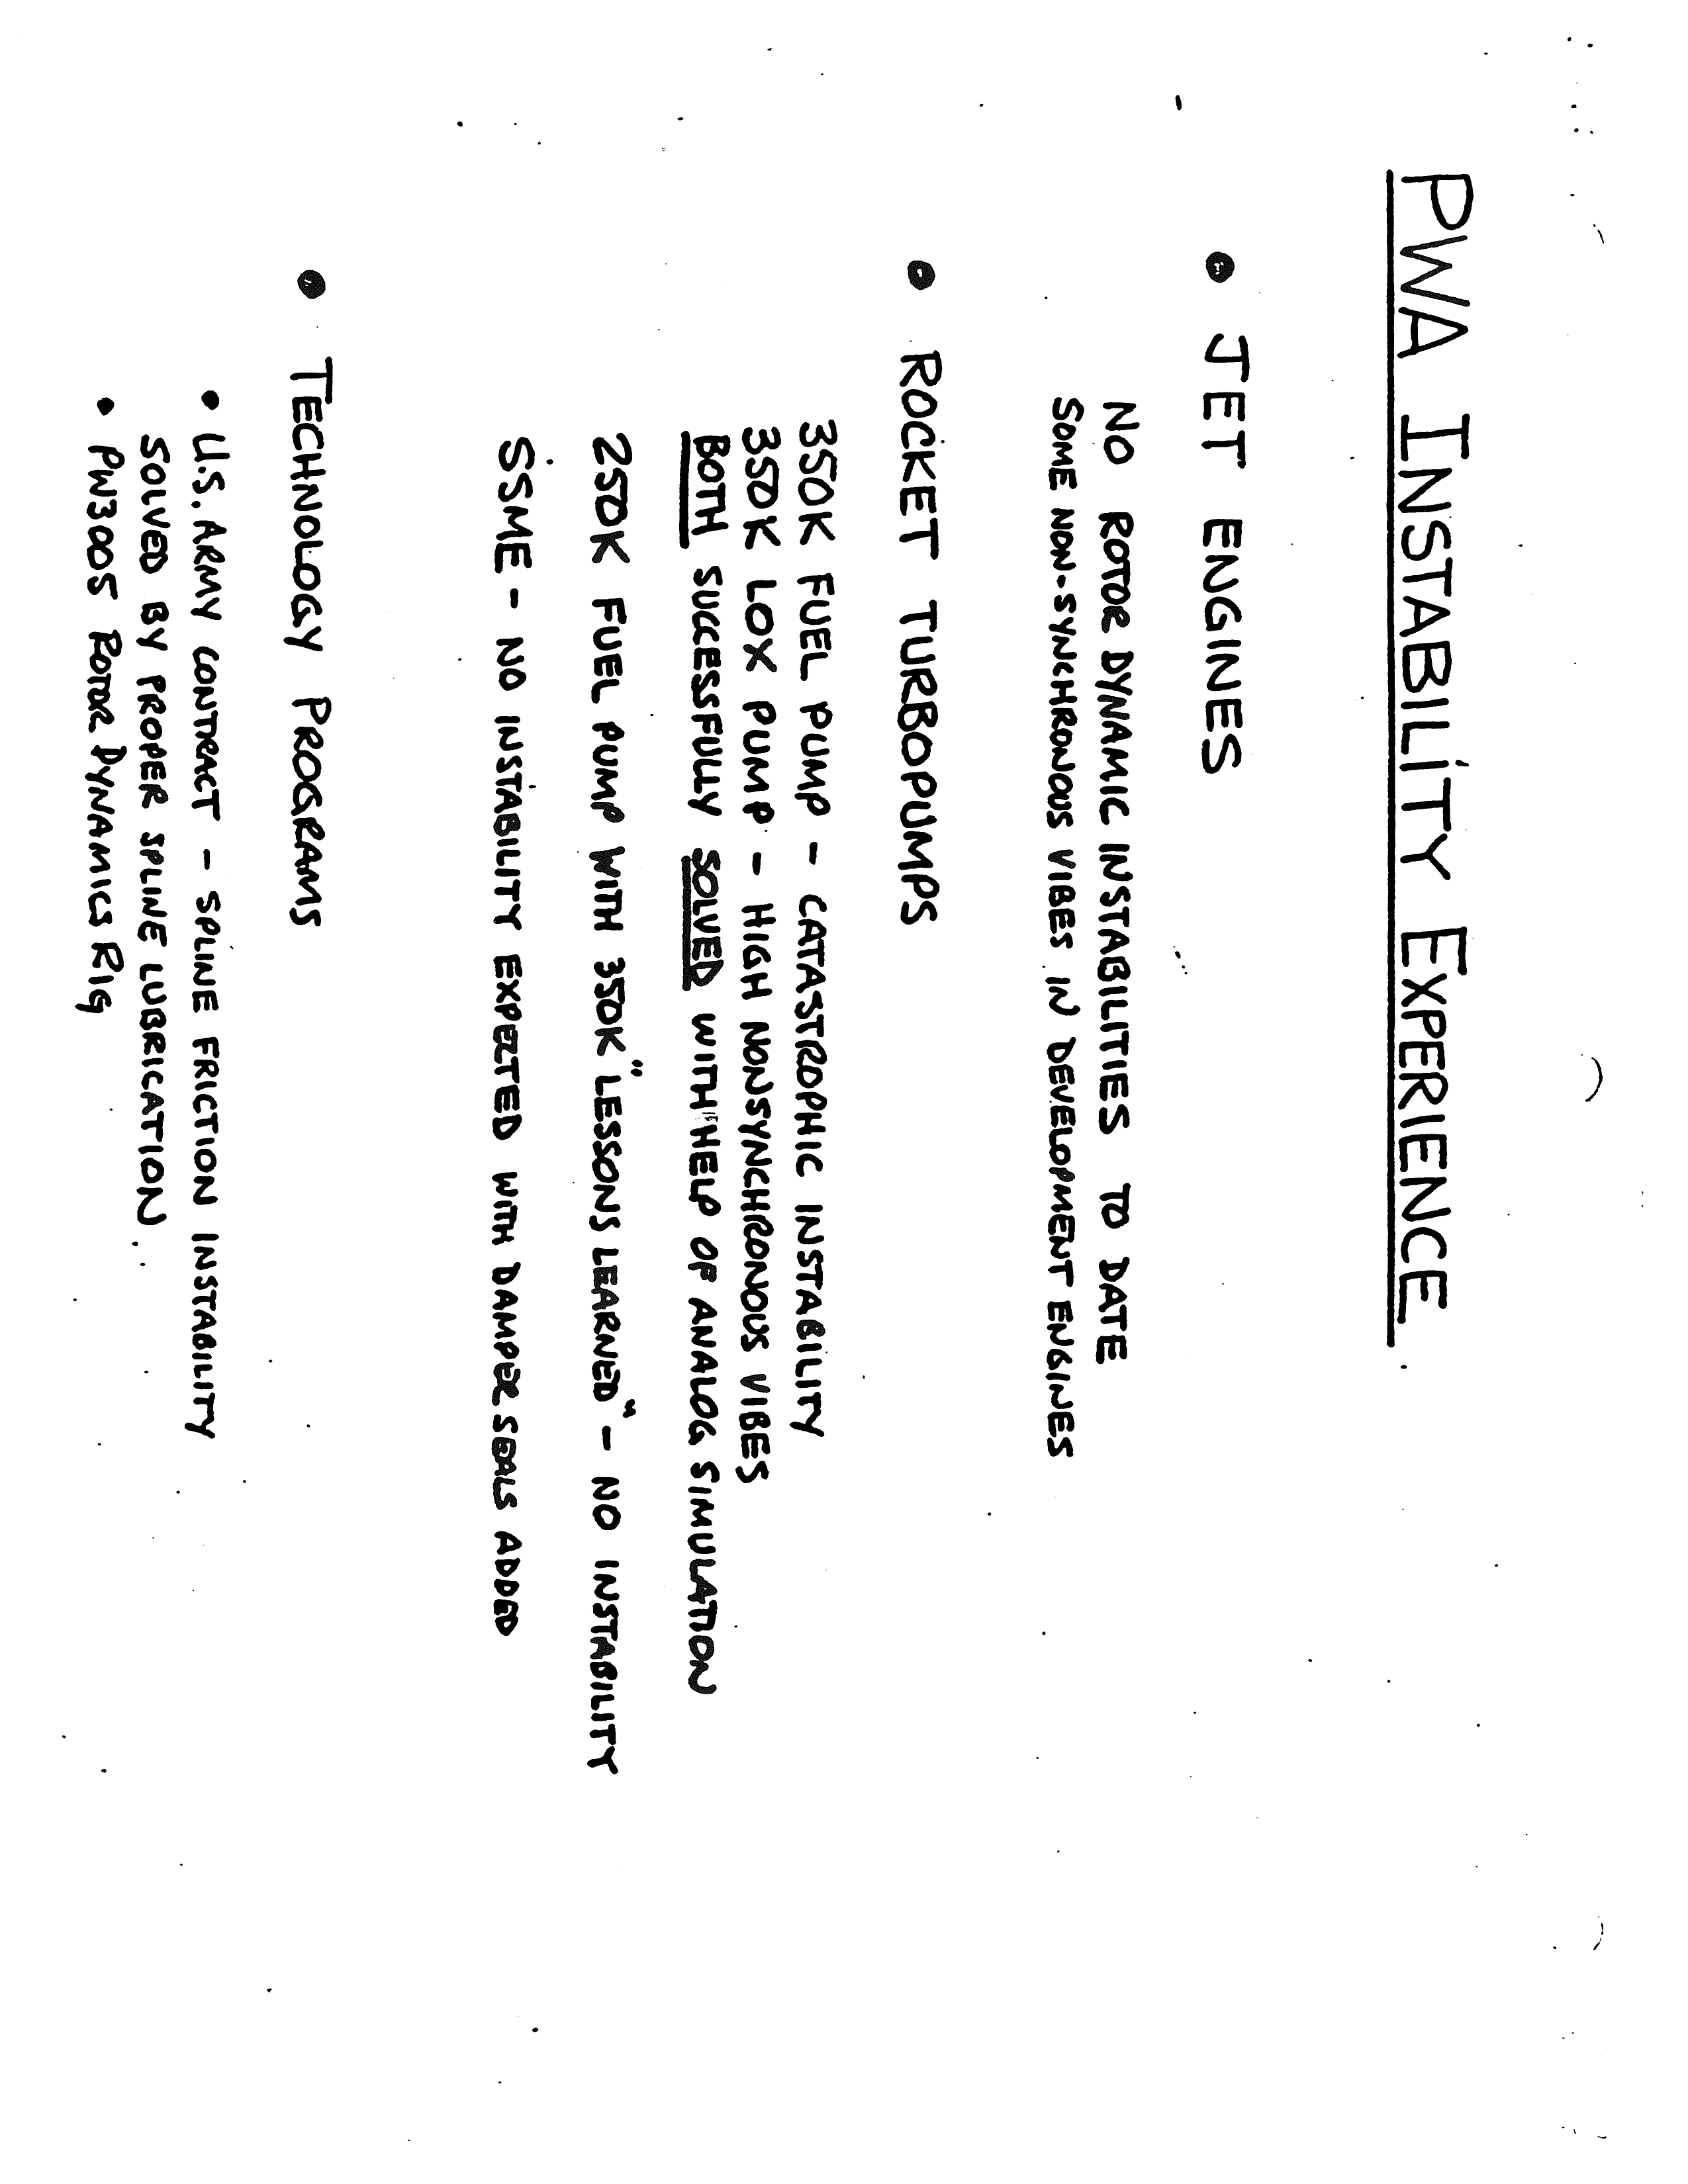 PWA INSTABILITY EXPERIENCE
• JET ENGINES
NO ROTOR DYNAMIC INSTABILITIES TO DATE
SOME NON-SYNCHRONOUS VIBES IN DEVELOPMENT ENGINES
• ROCKET TURBOPUMPS
350K FUEL PUMP - CATASTROPHIC INSTABILITY
350K LOX PUMP - HIGH NONSYNCHRONOUS VIBES
BOTH SUCCESSFULLY SOLVED WITH HELP OF ANALOG SIMULATION
250K FUEL PUMP WITH 350K "LESSONS LEARNED" - NO INSTABILITY
SSME - NO INSTABILITY EXPECTED WITH DAMPER SEALS ADDED
• TECHNOLOGY PROGRAMS
• U.S. ARMY CONTRACT - SPLINE FRICTION INSTABILITY
SOLVED BY PROPER SPLINE LUBRICATION
• PW3005 ROTOR DYNAMICS RIG